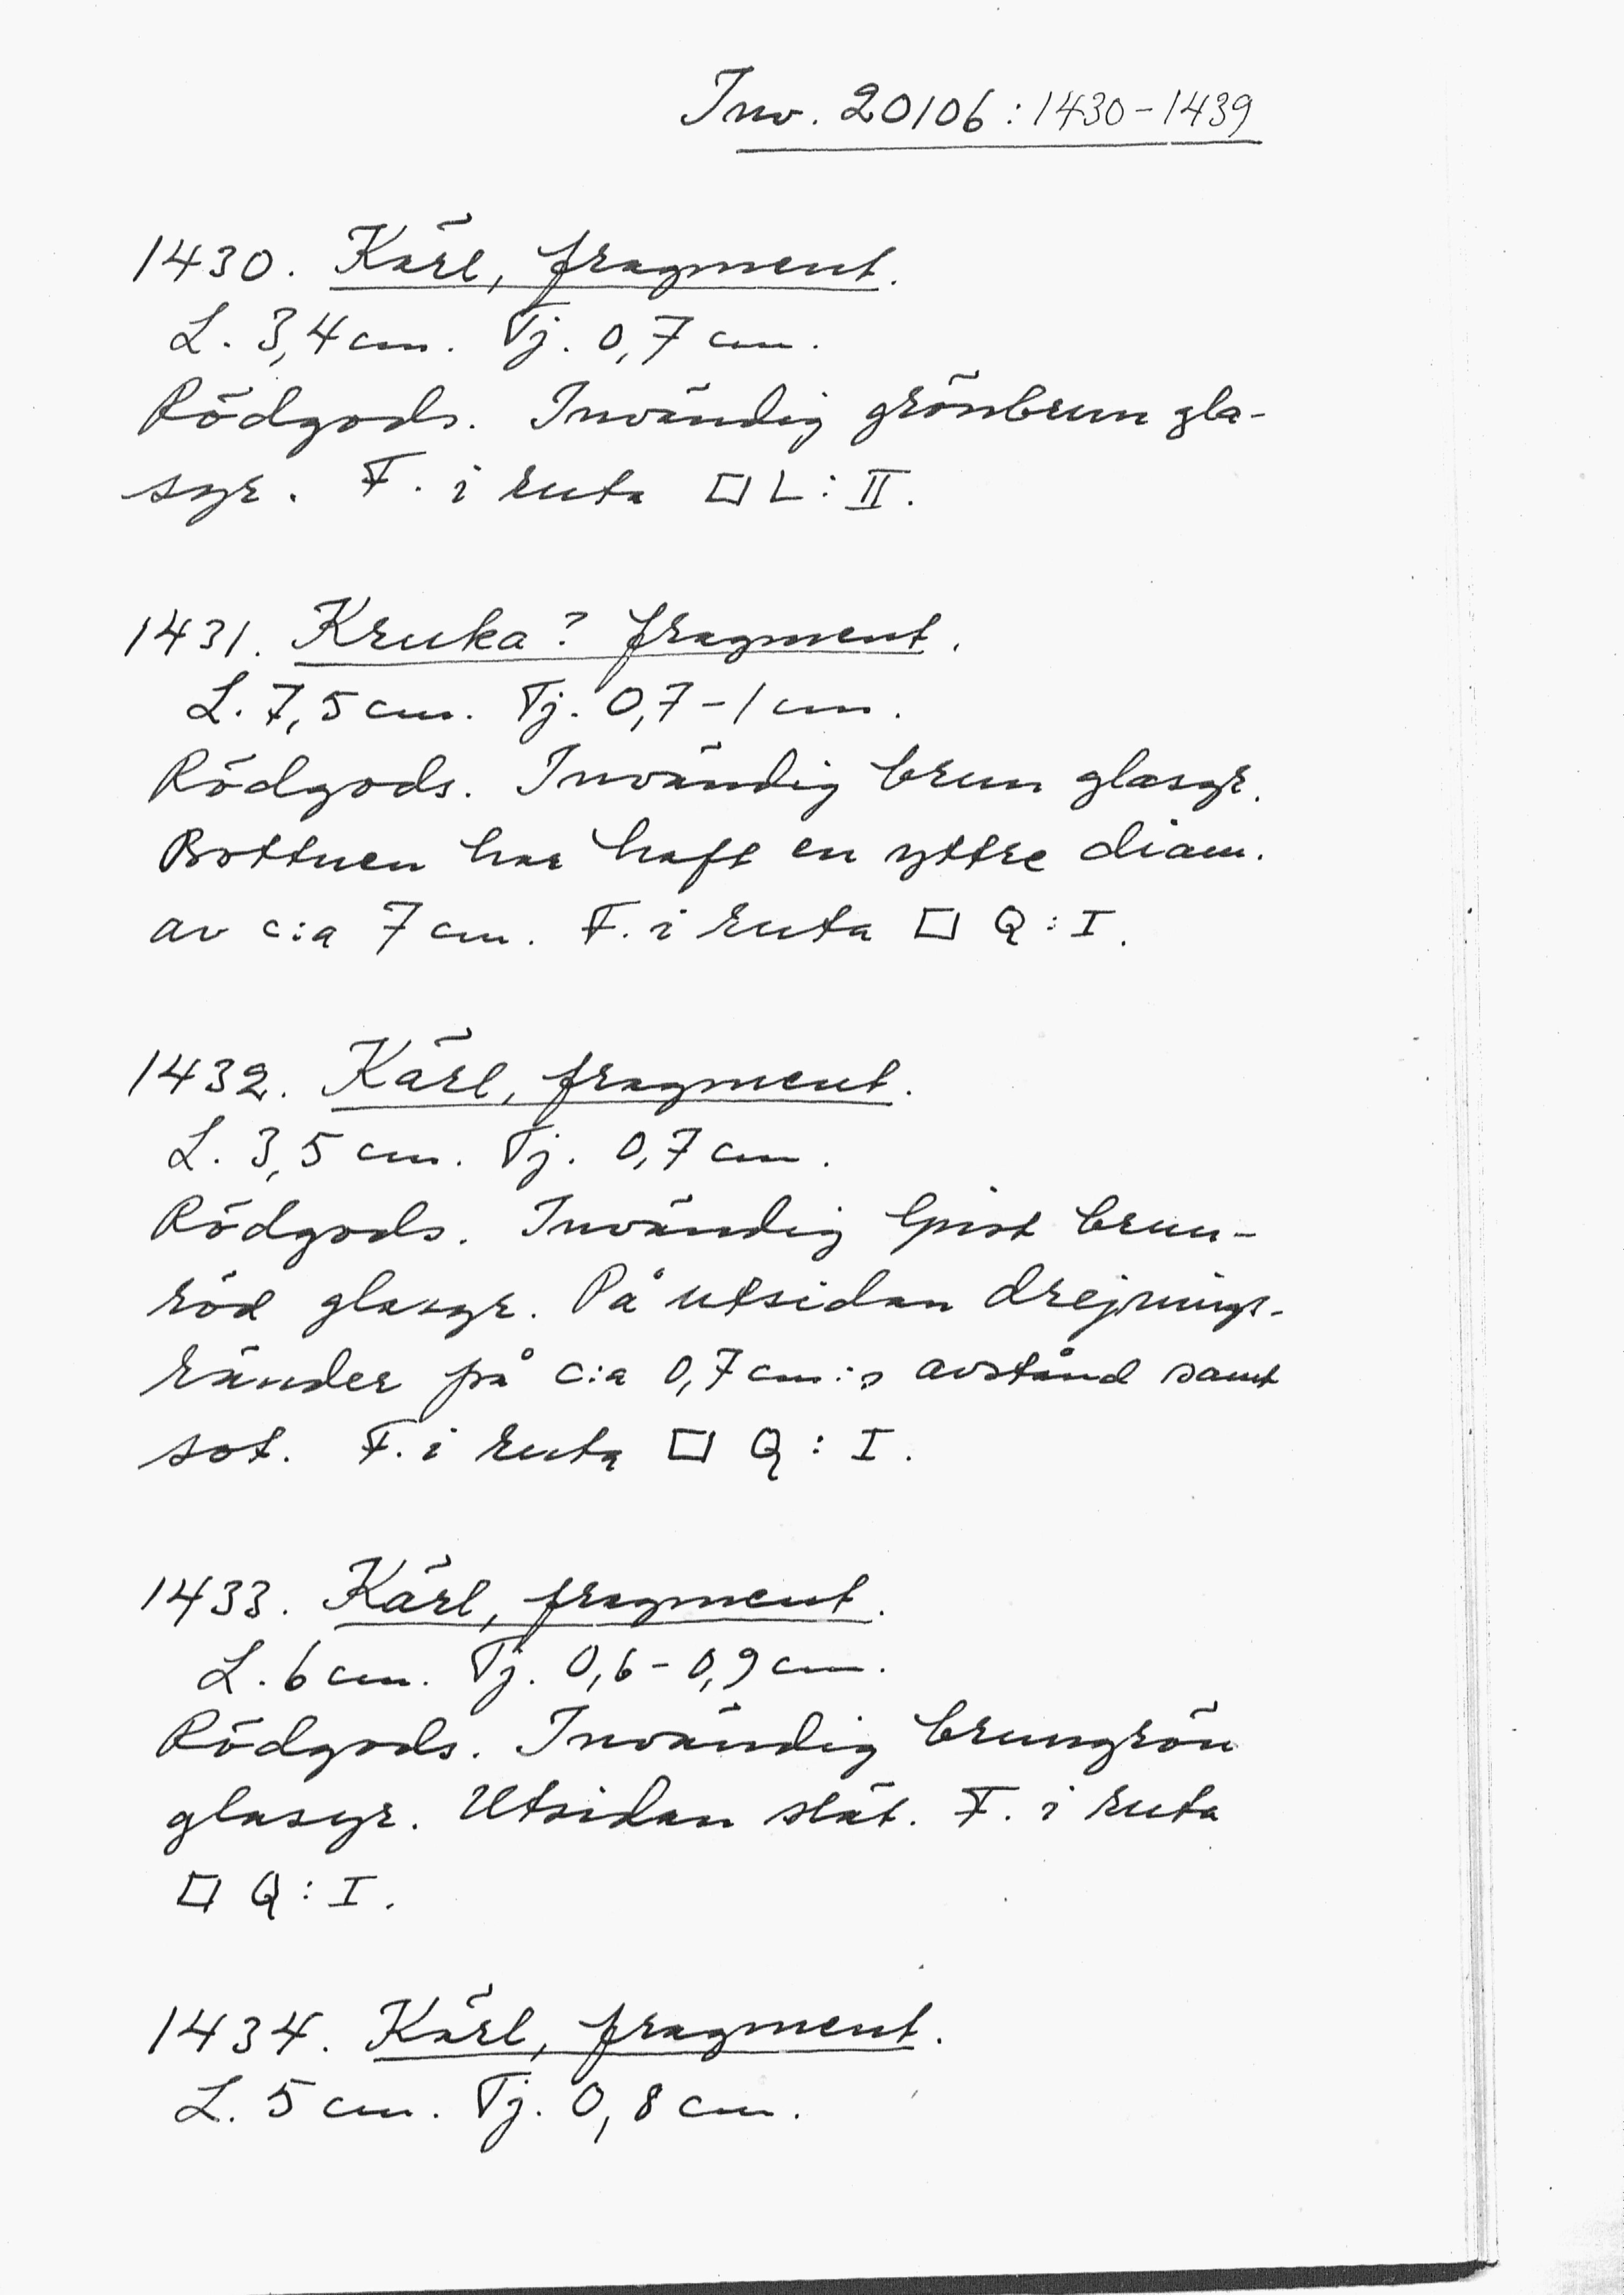 Inv. 20106:1430-1439
1430. Kärl, fragment.
L. 3,4 cm. Tj. 0,7 cm.
Rödgods. Invändig grönbrun gla-
syr. F. i ruta □ L: II.
1431. Kruka? fragment.
L. 7,5 cm. Tj. 0,7-1 cm.
Rödgods. Invändig brun glasyr.
Bottnen har haft en yttre diam.
av c:a 7 cm. F. i ruta □ Q: I.
1432. Kärl, fragment.
L. 3,5 cm. Tj. 0,7 cm.
Rödgods. Invändig ljust brun-
röd glasyr. På utsidan drejnings-
ränder på c:a 0,7 cm:s avstånd samt
sot. F. i ruta □ Q: I.
1433. Kärl, fragment.
L. 6 cm. Tj. 0,6-0,9 cm.
Rödgods. Invändig brungrön
glasyr. Utsidan slät. F. i ruta
□ Q: I.
1434. Kärl, fragment.
L. 5 cm. Tj. 0,8 cm.